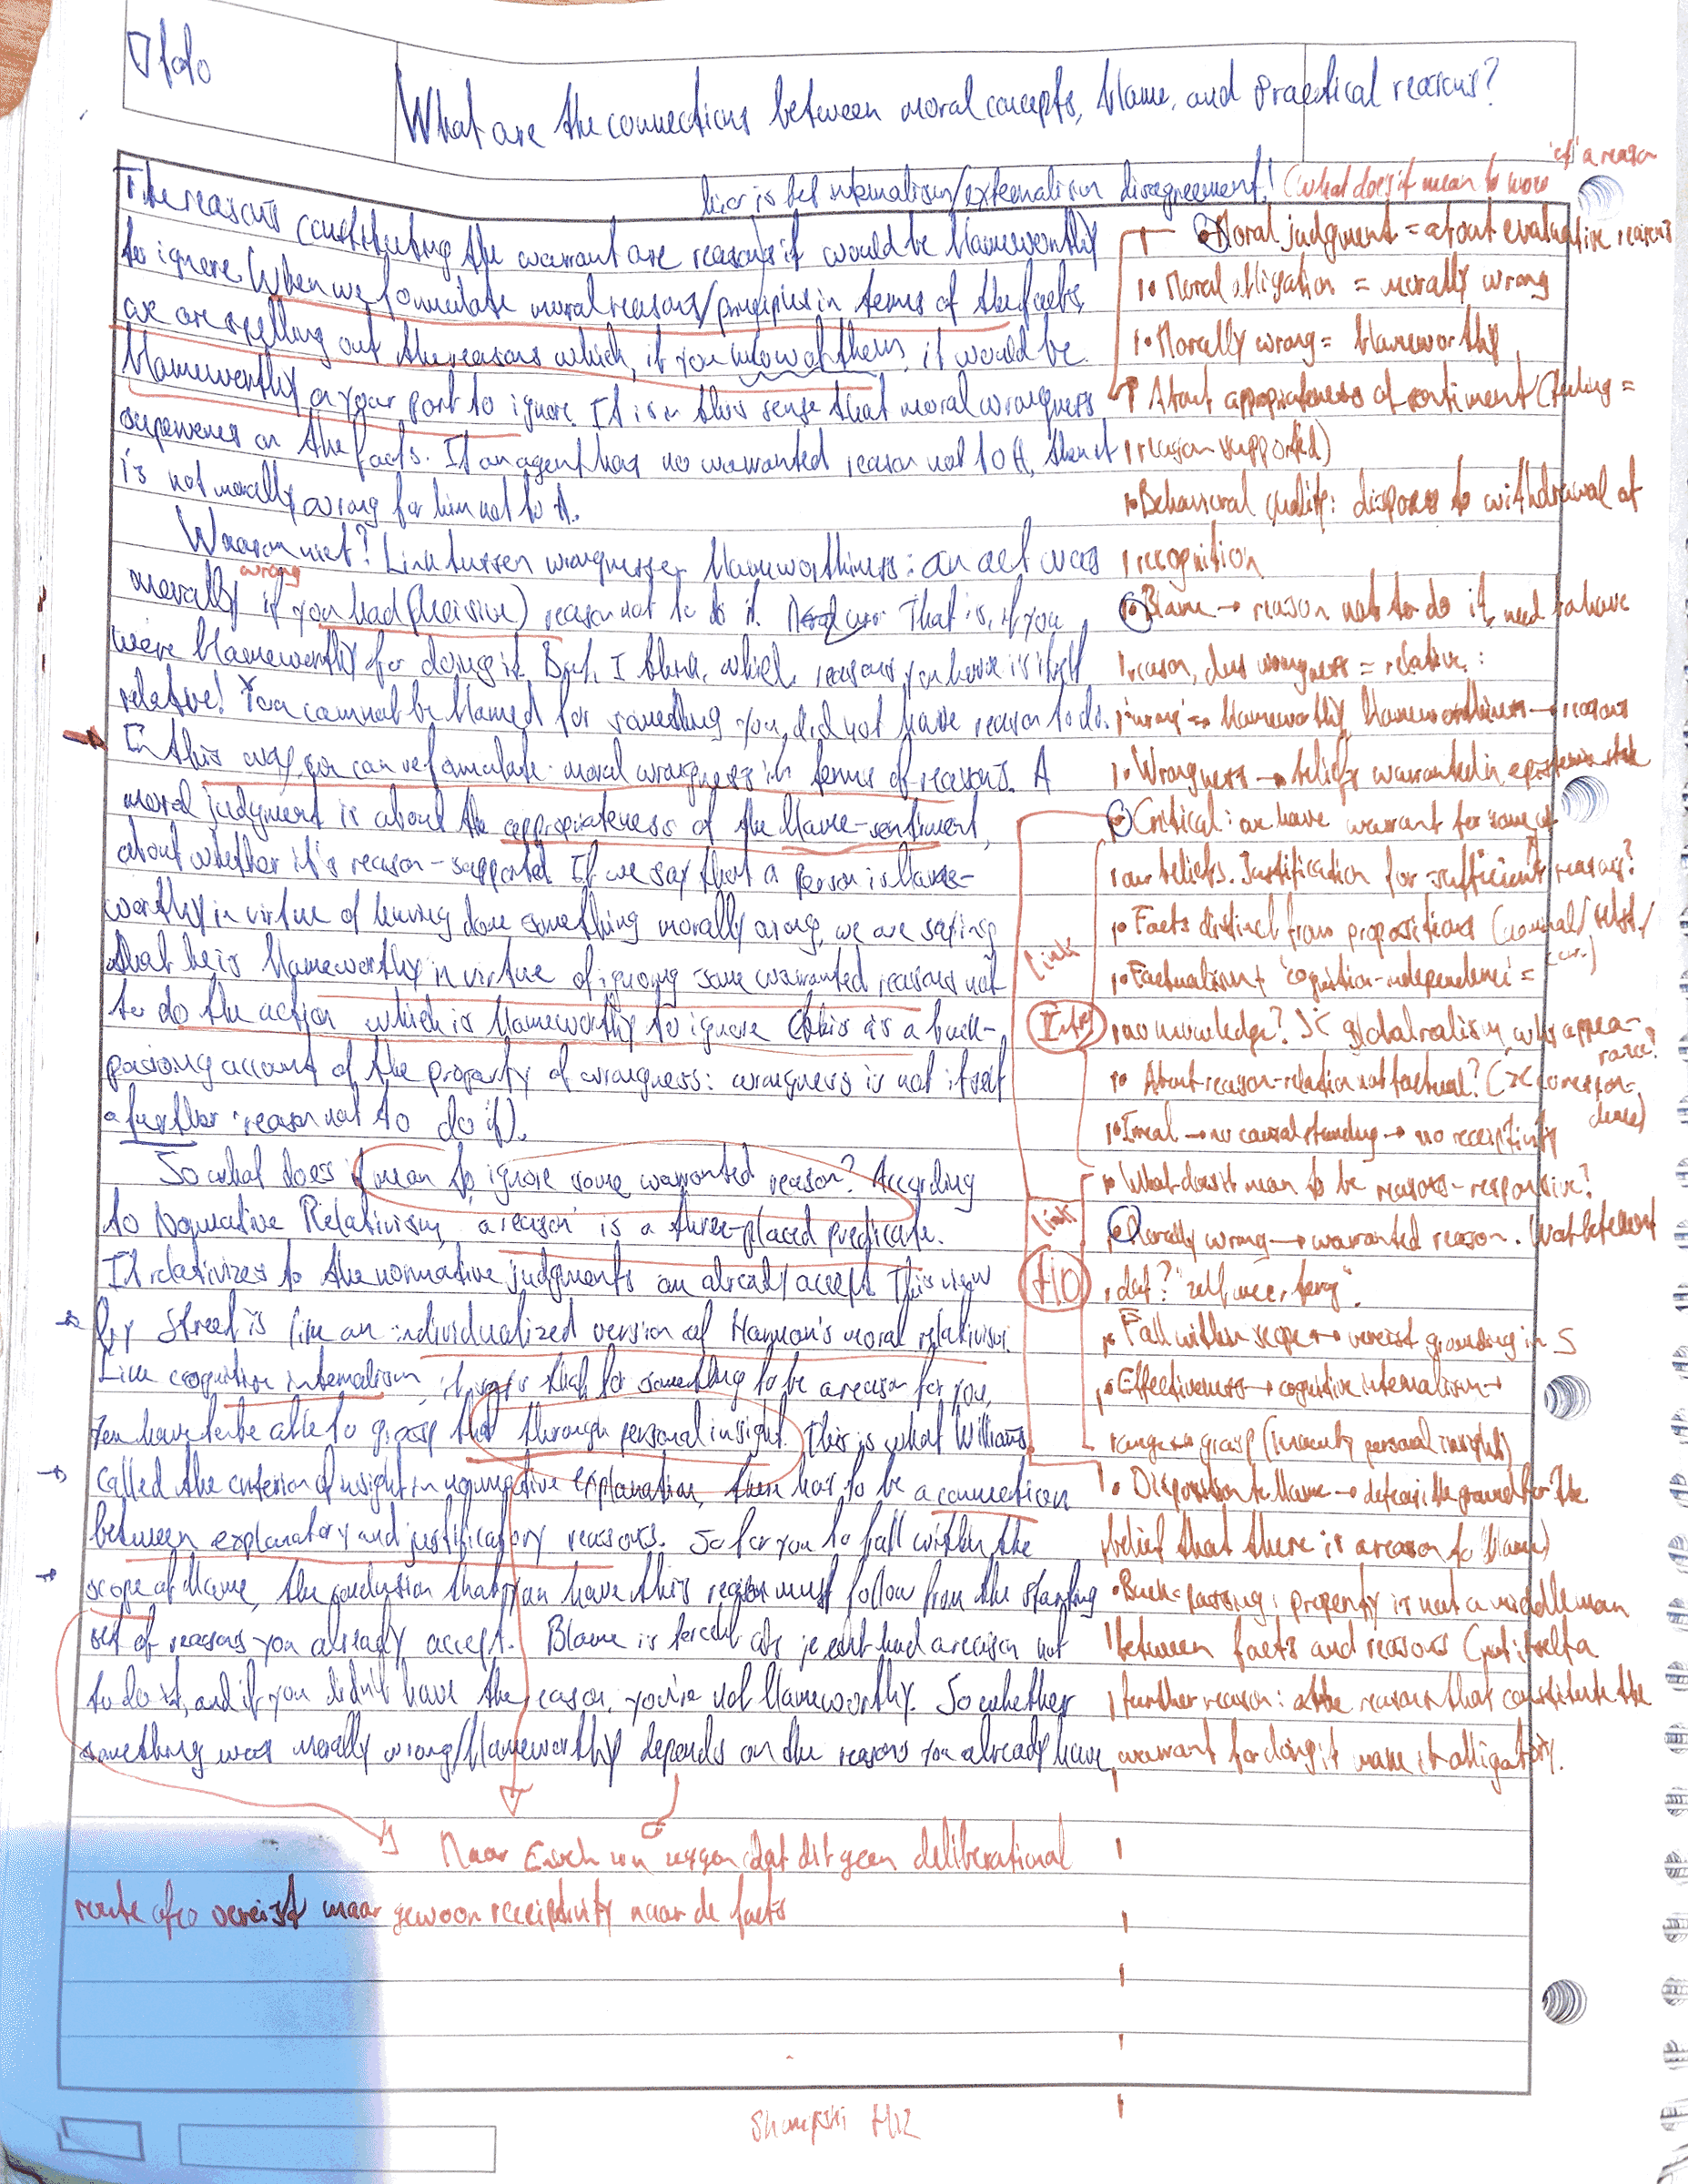 What are the connections between moral concepts, blame, and practical reasons?
hier is het internalism/externalism disagreement! (what does it mean to know 'of' a reason
The reasons constituting the warrant are reasons it would be blameworthy
to ignore. When we formulate moral reasons/principles in terms of the facts,
we are spelling out the reasons which, if you know of them, it would be
blameworthy on your part to ignore. It is in this sense that moral wrongness
supervenes on the facts. If an agent has no warranted reason not to A, then it
is not morally wrong for him not to A.
Waarom niet? Link tussen wrongness en blameworthiness: an act was
morally wrong if you had (decisive) reason not to do it. That is, if you
were blameworthy for doing it. But, I think, which reasons you have is itself
relative! You cannot be blamed for something you did not have reason to do.
In this way, you can reformulate moral wrongness in terms of reasons. A
moral judgment is about the appropriateness of the blame-sentiment,
about whether it's reason-supported. If we say that a person is blame-
worthy in virtue of having done something morally wrong, we are saying
that he is blameworthy in virtue of ignoring some warranted reasons not
to do the action which is blameworthy to ignore (this is a buck-
passing account of the property of wrongness: wrongness is not itself
a further reason not to do it).
So what does it mean to ignore some warranted reason? According
to Normative Relativism, 'a reason' is a three-placed predicate.
It relativizes to the normative judgments an already accept. This view
by Street is like an individualized version of Harman's moral relativism.
Like cognitive internalism, it says that for something to be a reason for you,
you have to be able to grasp that through personal insight. This is what Williams
called the criterion of insight in normative explanation, there has to be a connection
between explanatory and justificatory reasons. So for you to fall within the
scope of blame, the conclusion that you have this reason must follow from the starting
set of reasons you already accept. Blame is terecht als je echt had a reason not
to do it, and if you didn't have the reason, you're not blameworthy. So whether
something was morally wrong/blameworthy depends on the reasons you already have.
Maar Enoch kan zeggen dat dit geen deliberational
route ofzo vereist maar gewoon receptivity naar de facts
• Moral judgment = about evaluative reasons?
• Moral obligation = morally wrong
• Morally wrong = blameworthy
• About appropriateness of sentiment (feeling =
reason supported)
• Behavioural quality: disposes to withdrawal of
recognition
• Blame → reason not to do it, need to have
reason, dus wrongness = relative:
• 'wrong' → blameworthy, blameworthiness → reasons
• Wrongness → beliefs warranted in epistemic
• Critical: we have warrant for some of
our beliefs. Justification for sufficient reasons?
• Facts distinct from propositions
• Factualism + 'cognition-independence' =
no knowledge? global realism, why appea-
rance?
• About reason-relation not factual? (correspon-
dence)
• Irreal → no causal standing → no receptivity
• What does it mean to be reasons-responsive?
• Morally wrong → warranted reason. Wat betekent
dat?
• Fall within scope → vereist grounding in S
• Effectiveness → cognitive internalism →
range → grasp (through personal insight)
• Disposition to blame → defeasible ground for the
belief that there is a reason to blame)
• Buck-passing: property is not a middle man
between facts and reasons (not itself a
further reason: the reasons that constitute the
warrant for doing it make it obligatory.
link
Info
link
H10
Skorupski H12